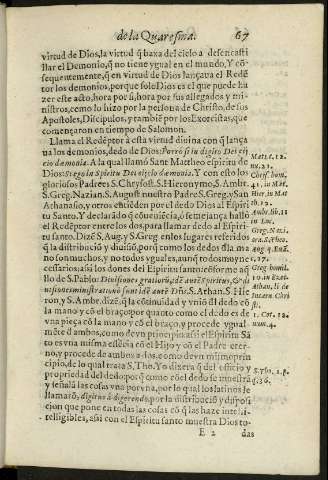 de la Quaresma. 67
virtud de Dios, la virtud q̃ baxa del cielo a desencasti
llar el Demonio, q̃ no tiene ygual en el mundo, Y cõ
sequentemente, q̃ en virtud de Dios lançava el Redẽ
tor los demonios, porque solo Dios es el que puede ha
zer este acto, hora por si, hora por sus allegados y mi-
nistros, como lo hizo por la persona de Christo, de sus
Apostoles, Discipulos, y tambiẽ por los Exorcistas, que
començaron en tiempo de Salomon.
Llama el Redẽptor à esta virtud divina con q̃ lança
va los demonios, dedo de Dios: Porrò si in digito Dei eij
cio dæmonia. A la qual llamò Sant Mattheo espiritu de
Dios: Si ego in Spiritu Dei eijcio dæmonia. Y con esto los
gloriosos Padres S. Chrysost. S. Hieronymo, S. Ambr.
S. Greg. Nazian. S. August. nuestro Padre S. Greg. y San
Athanasio, y otros entiẽden por el dedo Dios al Espiri
tu Santo. Y declarãdo la conueniẽcia, ò semejança hallò
el Redẽptor entre los dos, para llamar dedo al Espiri-
tu santo. Dizẽ S. Aug. y S. Greg. en los lugares referidos
q̃ la distribuciõ y diuisiõ, porq̃ como los dedos dla ma
no son muchos, y no todos yguales, aunq̃ todos muy ne
cessarios: assi los dones del Espiritu santo: cõforme aq̃
llo de S. Pablo: Diuisiones gratiarũ, idẽ autẽ spiritus, & di
uisiones ministrationũ sunt idẽ autẽ Dñs. S. Athan. S. Hie
ron, y S. Ambr. dizẽ, q̃ la cõtinuidad y vniõ dl dedo cõ
la mano y cõ el braço: porque quanto como el dedo es de
vna pieça cõ la mano y cõ el braço, y procede ygual-
mẽte de ambos, como de vn principio: assi el Espiritu Sã
to es vna misma essẽcia cõ el Hijo y cõ el Padre eter-
no, y procede de ambos a dos, como de vn mismo prin
cipio, de lo qual trata S. Tho. Yo dixera q̃ del oficio y
propriedad del dedo: porq̃ como cõ el dedo se muestra
y señalã las cosas vna por vna, por lo qual los latinos le
llamarõ, digitus à digerendo, por la distribuciõ y disposi
cion que pone en todas las cosas cõ q̃ las haze inteli-
telligibles, assi con el Espiritu santo muestra Dios to-
E 2 das
Matt. 12.
nu. 21.
Chris. hom.
41. in Mat
Hier. in Mat
th. 12.
Ambr. lib. 11
in Luc.
Greg. Nazi-
1. Cor. 12.
num. 4.
S. Tho. 1. p.
q. 36.